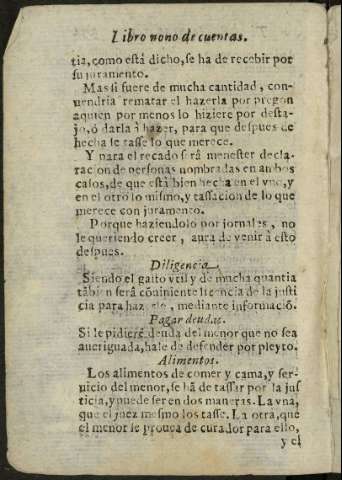 Libro nono de cuentas.
tia, como está dicho, se ha de recebir por
su juramento.
Mas si fuere de mucha cantidad, con-
uendria rematar el hazerla por pregon
aquien por menos lo hiziere por desta-
jo, ó darla à hazer, para que despues de
hecha se tasse lo que merece.
Y para el recado será menester decla-
racion de personas nombradas en ambos
casos, de que está bien hecha en el vno, y
en el otro lo mismo, y tassacion de lo que
merece con juramento.
Porque haziendolo por jornales, no
le queriendo creer, aura de venir à esto
despues.
Diligencia.
Siendo el gasto vtil y de mucha quantia
tãbien será cõuiniente licencia de la justi
cia para hazerlo, mediante informació.
Pagar deudas.
Si le pidierẽ deuda del menor que no sea
aueriguada, hase de defender por pleyto.
Alimentos.
Los alimentos de comer y cama, y ser-
uicio del menor, se hã de tassar por la jus
ticia, y puede ser en dos maneras. La vna,
que el juez mesmo los tasse. La otra, que
el menor se prouea de curador para ello,
y el